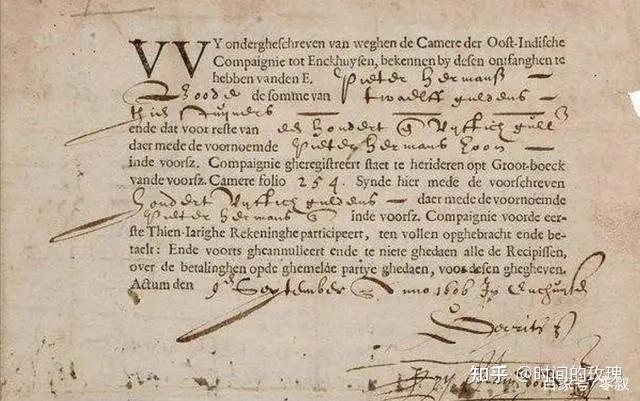 VVY ondergheschreven van weghen de Camere der Oost-Indische
Compaignie tot Enckhuysen, bekennen by desen ontfanghen te
hebben vanden E. Pieter Hermanß
de somme van twaelff guldens
ende dat voor reste van een hondert vijftich gull
daer mede de voornoemde Pieter Hermans zoon
inde voorsz. Compaignie gheregistreert staet te herideren opt Groot-boeck
vande voorsz. Camere folio 254. Synde hier mede de voorschreven
hondert vijftich guldens daer mede de voornoemde
Pieter Hermans inde voorsz. Compaignie voorde eer-
ste Thien-Iarighe Rekeninghe participeert, ten vollen opghebracht ende be-
taelt: Ende voorts gheannulleert ende te niete ghedaen alle de Recipissen,
over de betalinghen opde ghemelde partye ghedaen, voor desen ghegheven.
Actum den 9 September Anno 1606
知乎 @时间的玫瑰
百家号/零叔